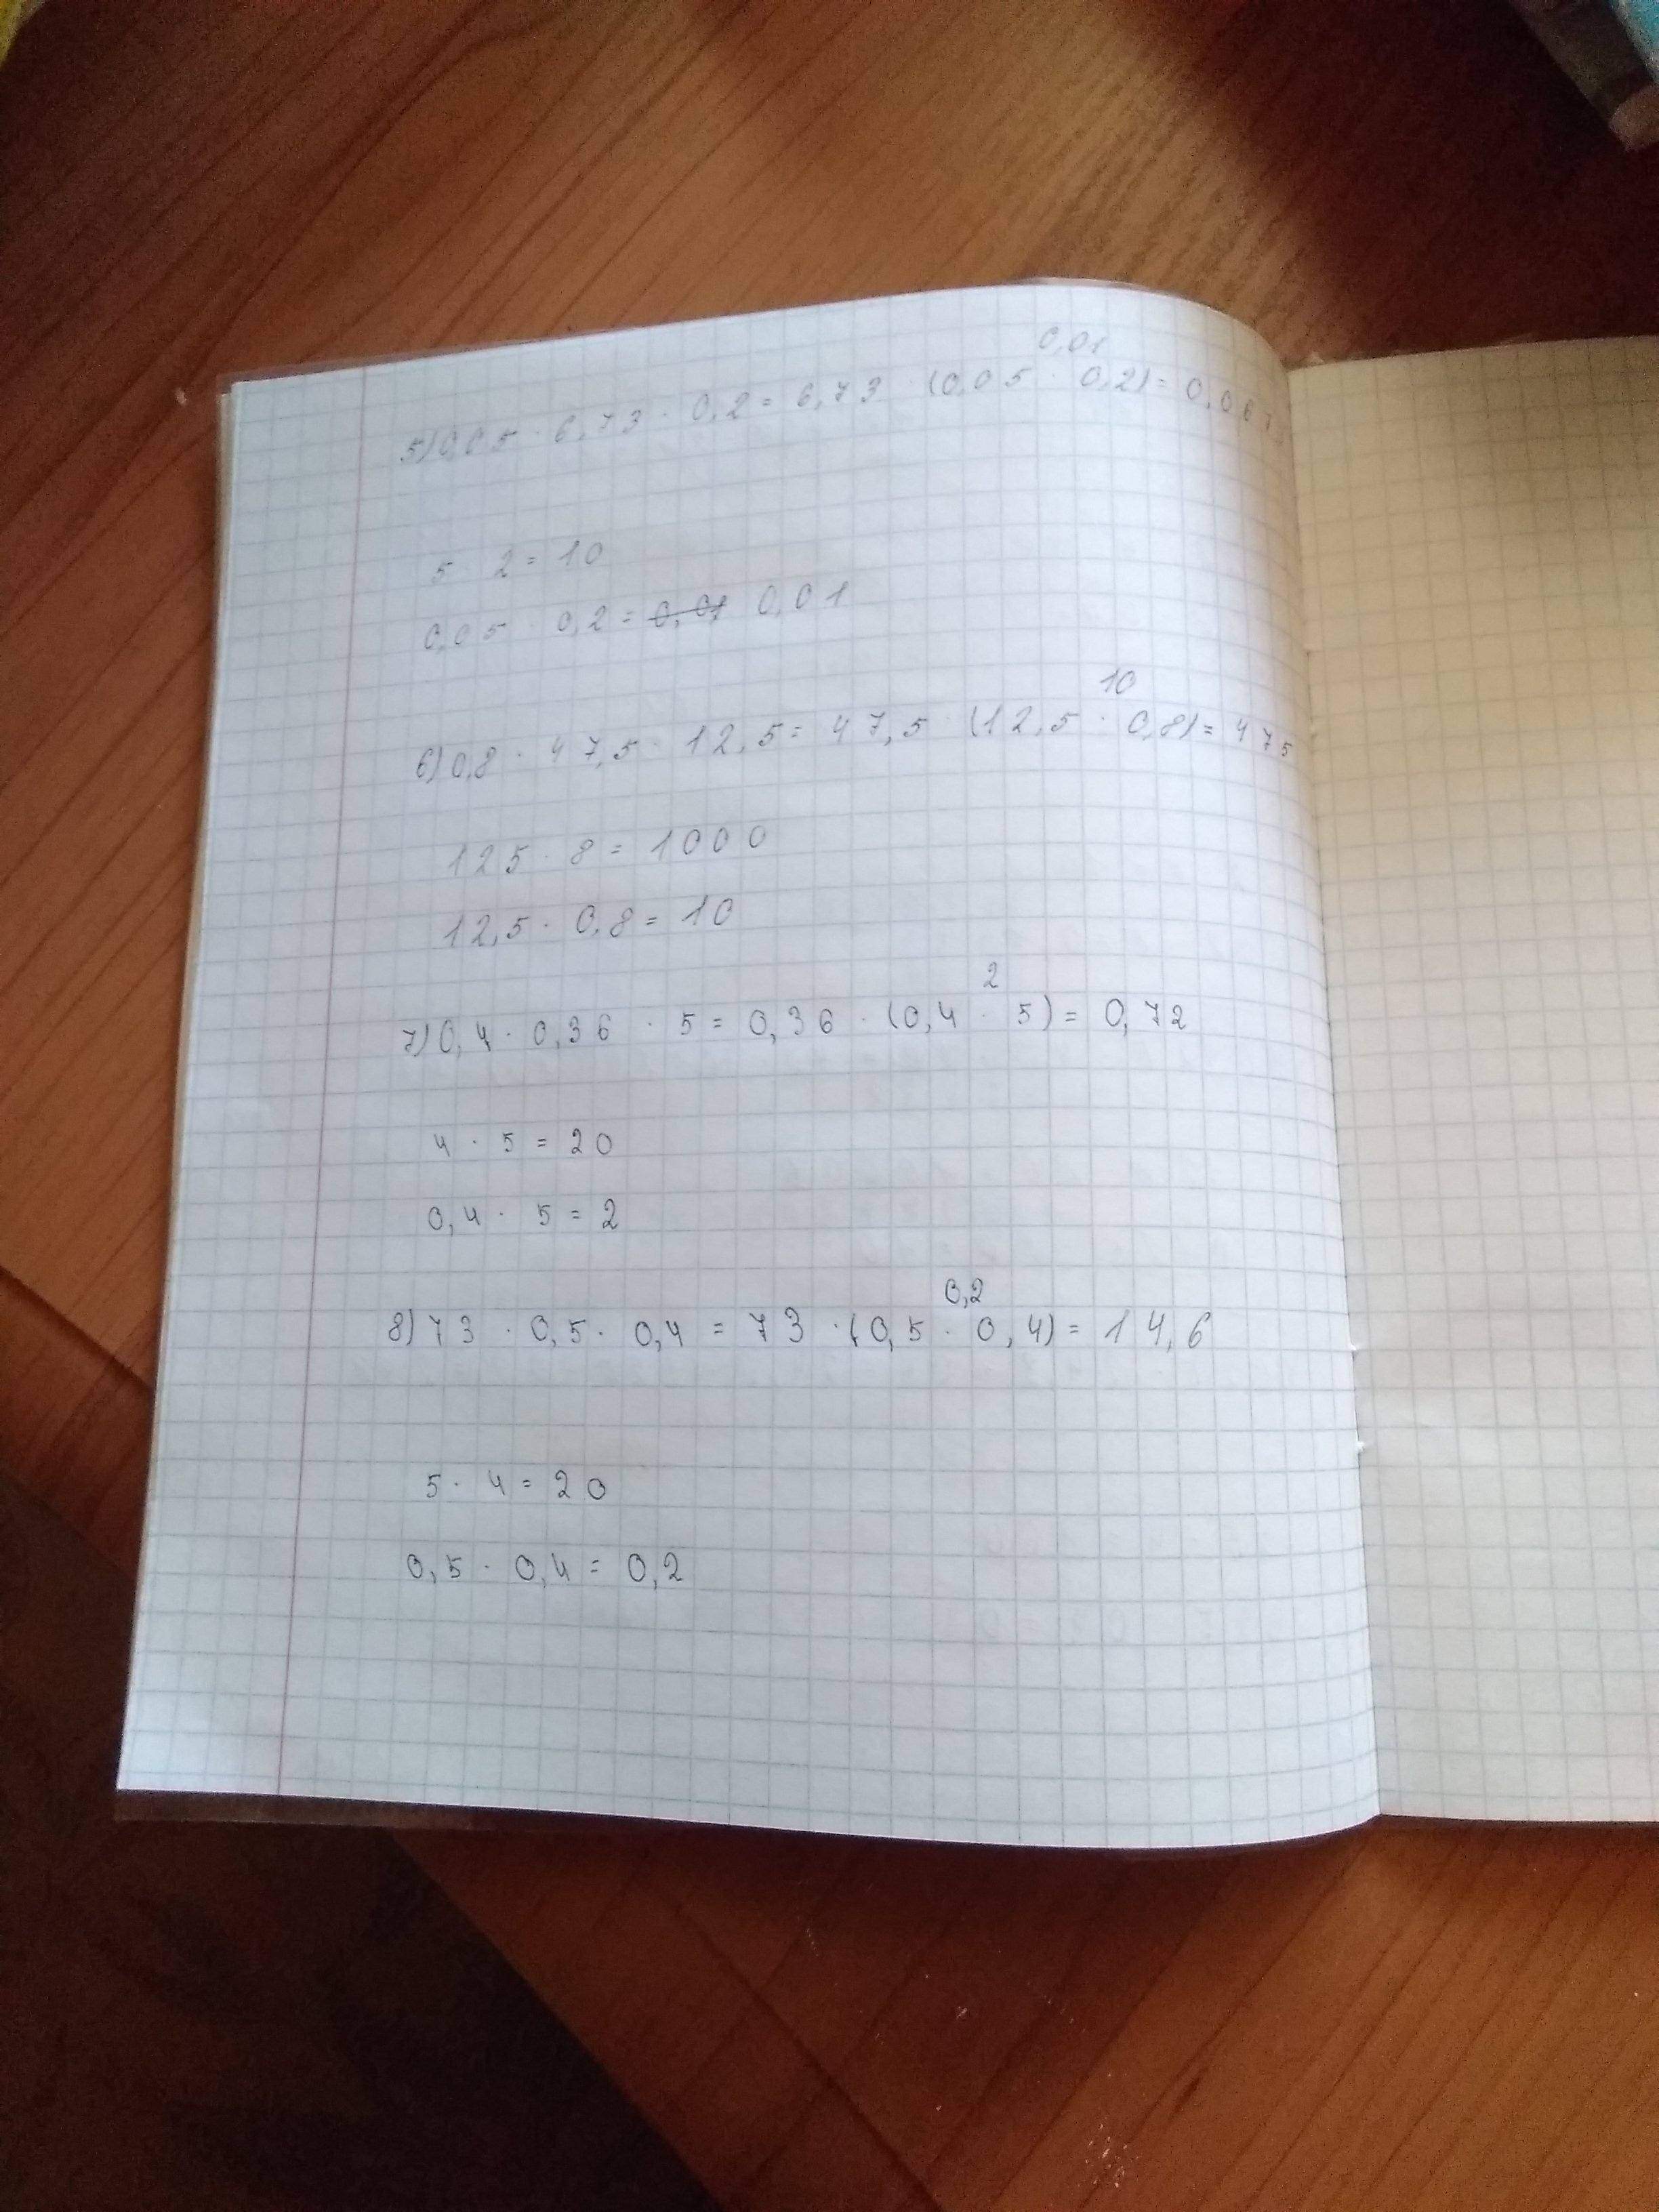 0,01
5) 0,05 · 6,73 · 0,2 = 6,73 · (0,05 · 0,2) = 0,0673
5 · 2 = 10
0,05 · 0,2 = 0,01 0,01
10
6) 0,8 · 47,5 · 12,5 = 47,5 · (12,5 · 0,8) = 475
125 · 8 = 1000
12,5 · 0,8 = 10
2
7) 0,4 · 0,36 · 5 = 0,36 · (0,4 · 5) = 0,72
4 · 5 = 20
0,4 · 5 = 2
0,2
8) 73 · 0,5 · 0,4 = 73 · (0,5 · 0,4) = 14,6
5 · 4 = 20
0,5 · 0,4 = 0,2